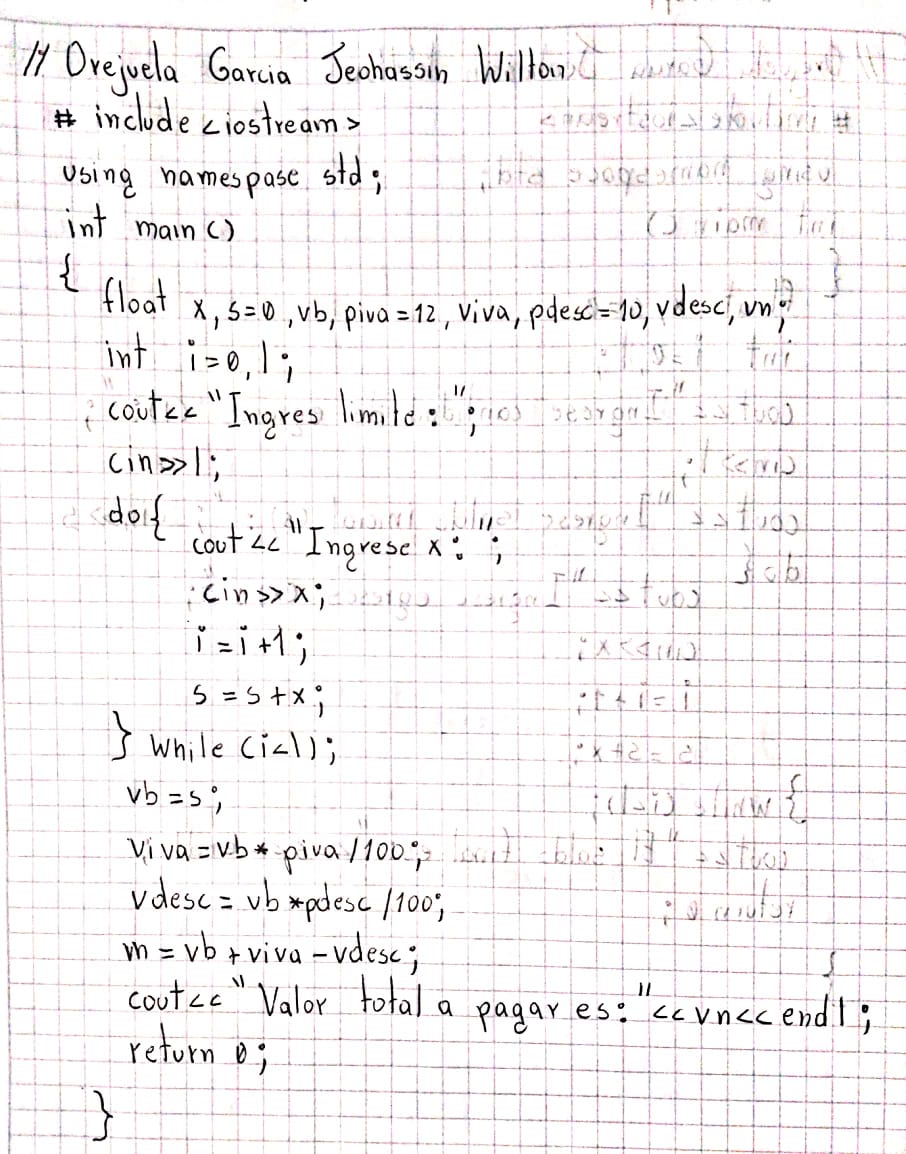 // Orejuela Garcia Jeohassin Wilton
# include <iostream>
using namespase std;
int main ()
{ float x, s=0, vb, piva = 12, viva, pdesc = 10, vdesc, vn;
int i=0, l;
cout<< "Ingres limite: ";
cin>>l;
do{
cout << "Ingrese x: ";
cin>>x;
i = i +1;
s = s + x;
} while (i<l);
vb = s;
viva = vb * piva /100;
vdesc = vb *pdesc /100;
m = vb + viva - vdesc;
cout<< "Valor total a pagar es: "<< vn<< endl;
return 0;
}